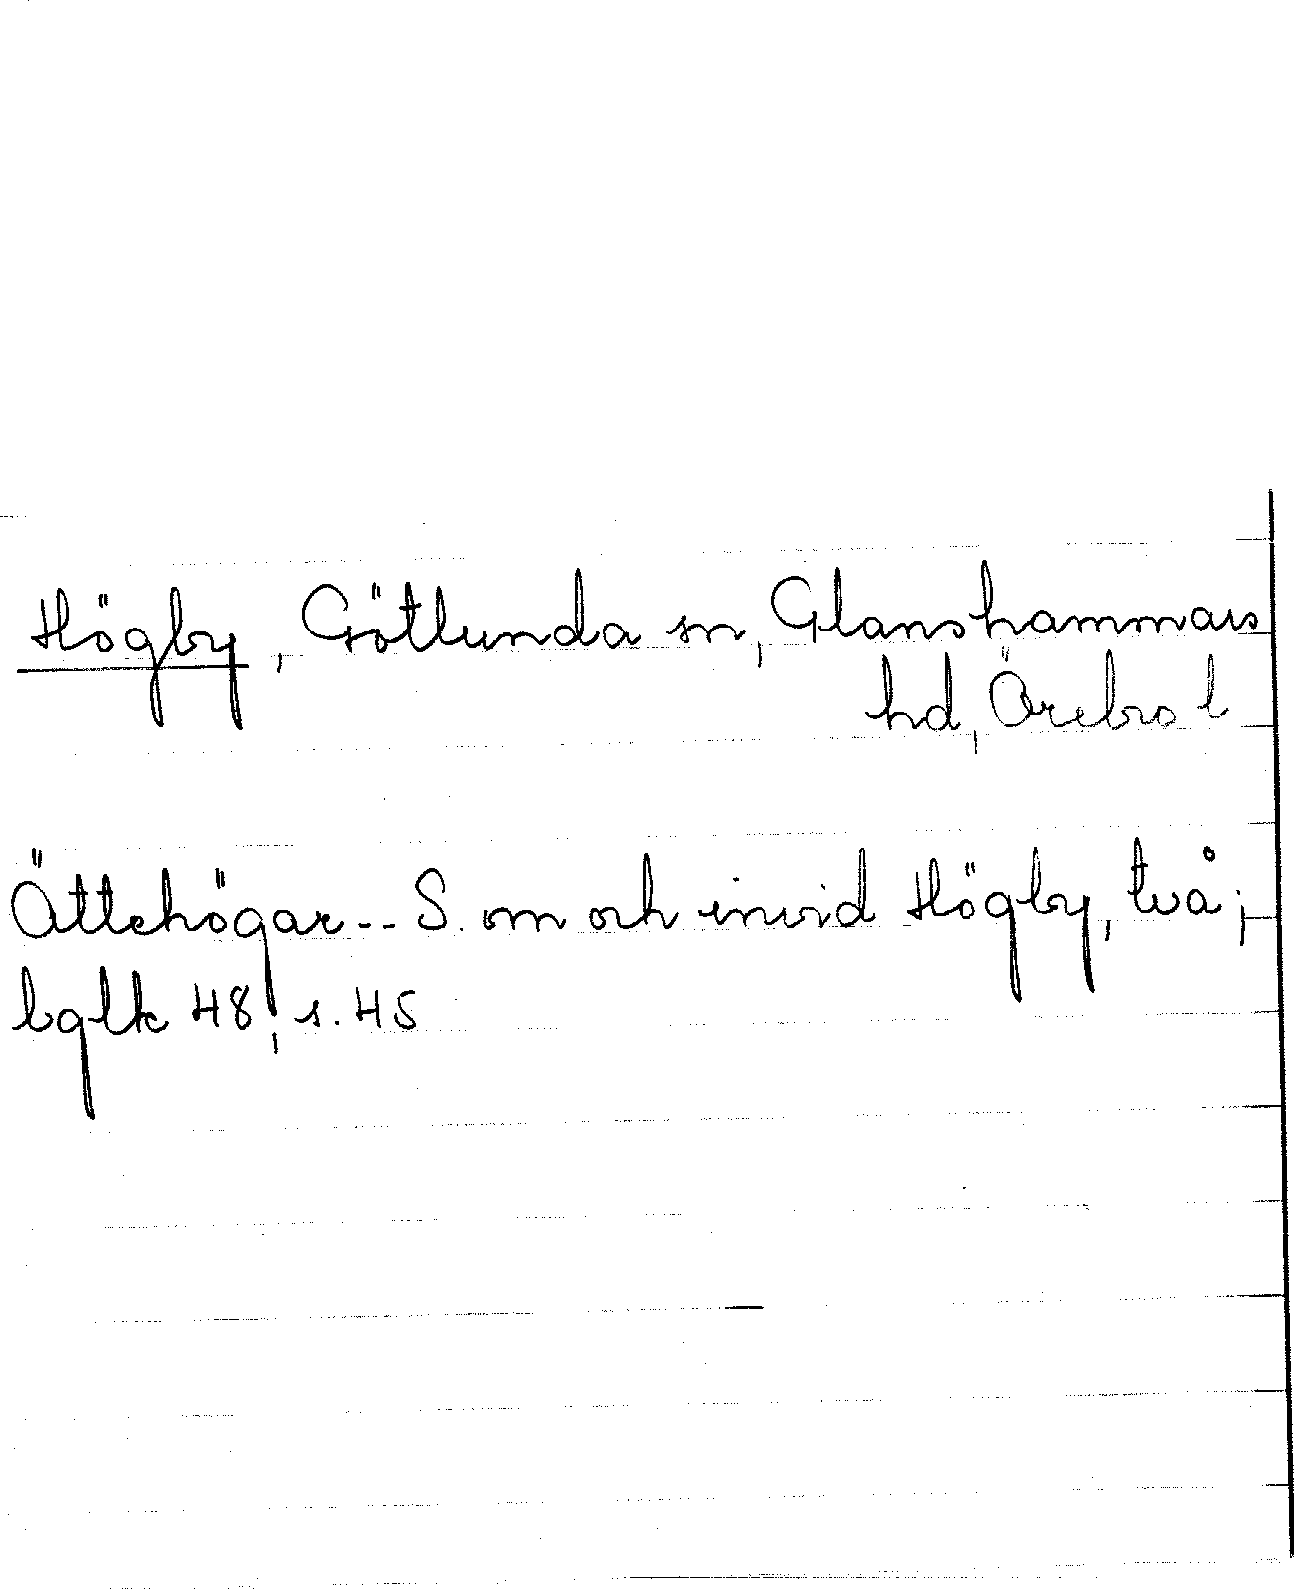 Högby, Götlunda sn, Glanshammars
hd, Örebro l
Ättehögar-- S. om och invid Högby, två;
bglk 48, s. 45